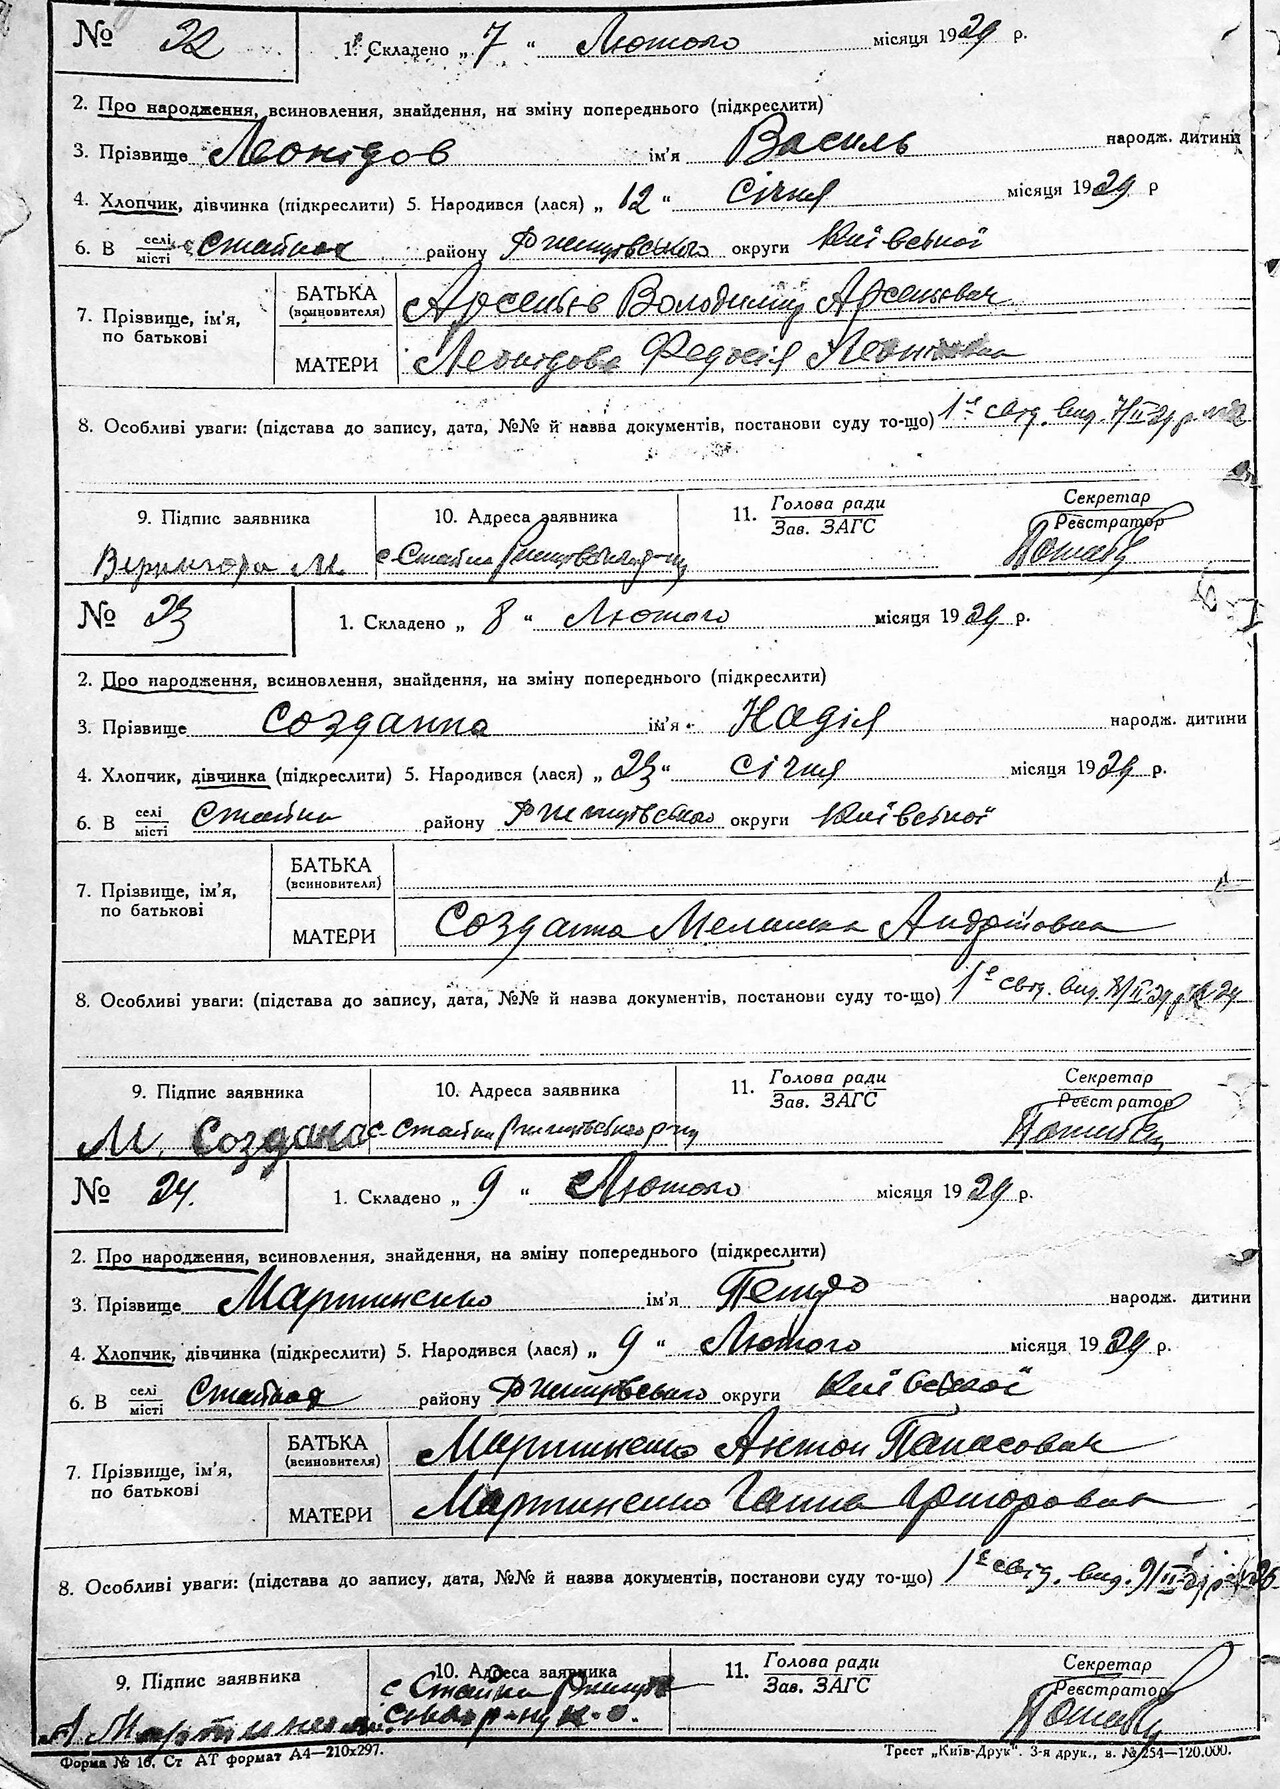 № 22 1. Складено „ 7 “ Лютого місяця 1929 р.
2. Про народження, всиновлення, знайдення, на зміну попереднього (підкреслити)
3. Прізвище Леонідов ім’я Василь народж. дитини
4. Хлопчик, дівчинка (підкреслити) 5. Народився (лася) „ 12 “ січня місяця 1929 р
6. В селі/місті Стайках району Ржищівського округи Київської
7. Прізвище, ім’я, по батькові
БАТЬКА (всиновителя) Арсеньєв Володимир Арсеньович
МАТЕРИ Леонідова Федосія
8. Особливі уваги: (підстава до запису, дата, №№ й назва документів, постанови суду то-що) 1е свід. вид. 7/II 29 р
9. Підпис заявника 10. Адреса заявника 11. Голова ради/Зав. ЗАГС Секретар/Реєстратор
Веримгора М. с. Стайки
№ 23 1. Складено „ 8 “ Лютого місяця 1929 р.
2. Про народження, всиновлення, знайдення, на зміну попереднього (підкреслити)
3. Прізвище Созданна ім’я Надія народж. дитини
4. Хлопчик, дівчинка (підкреслити) 5. Народився (лася) „ 23 “ січня місяця 1929 р.
6. В селі/місті Стайки району Ржищівського округи Київської
7. Прізвище, ім’я, по батькові
БАТЬКА (всиновителя)
МАТЕРИ Созданна Меланка Андріївна
8. Особливі уваги: (підстава до запису, дата, №№ й назва документів, постанови суду то-що) 1е свід. вид. 8/II 29 р № 24
9. Підпис заявника 10. Адреса заявника 11. Голова ради/Зав. ЗАГС Секретар/Реєстратор
М. Создана с. Стайки Ржищівського р-ну
№ 24. 1. Складено „ 9 “ Лютого місяця 1929 р.
2. Про народження, всиновлення, знайдення, на зміну попереднього (підкреслити)
3. Прізвище Мартиненко ім’я Петро народж. дитини
4. Хлопчик, дівчинка (підкреслити) 5. Народився (лася) „ 9 “ Лютого місяця 1929 р.
6. В селі/місті Стайках району Ржищівського округи Київської
7. Прізвище, ім’я, по батькові
БАТЬКА (всиновителя) Мартиненко Антон Панасович
МАТЕРИ Мартиненко Ганна Григоровна
8. Особливі уваги: (підстава до запису, дата, №№ й назва документів, постанови суду то-що) 1е свід. вид. 9/II 29 р № 25
9. Підпис заявника 10. Адреса заявника 11. Голова ради/Зав. ЗАГС Секретар/Реєстратор
с Стайки Ржищів
А Мартиненко ського р-ну к-о.
Форма № 16. Ст АТ формат А4—210х297. Трест „Київ-Друк“. 3-я друк., в. № 254—120.000.